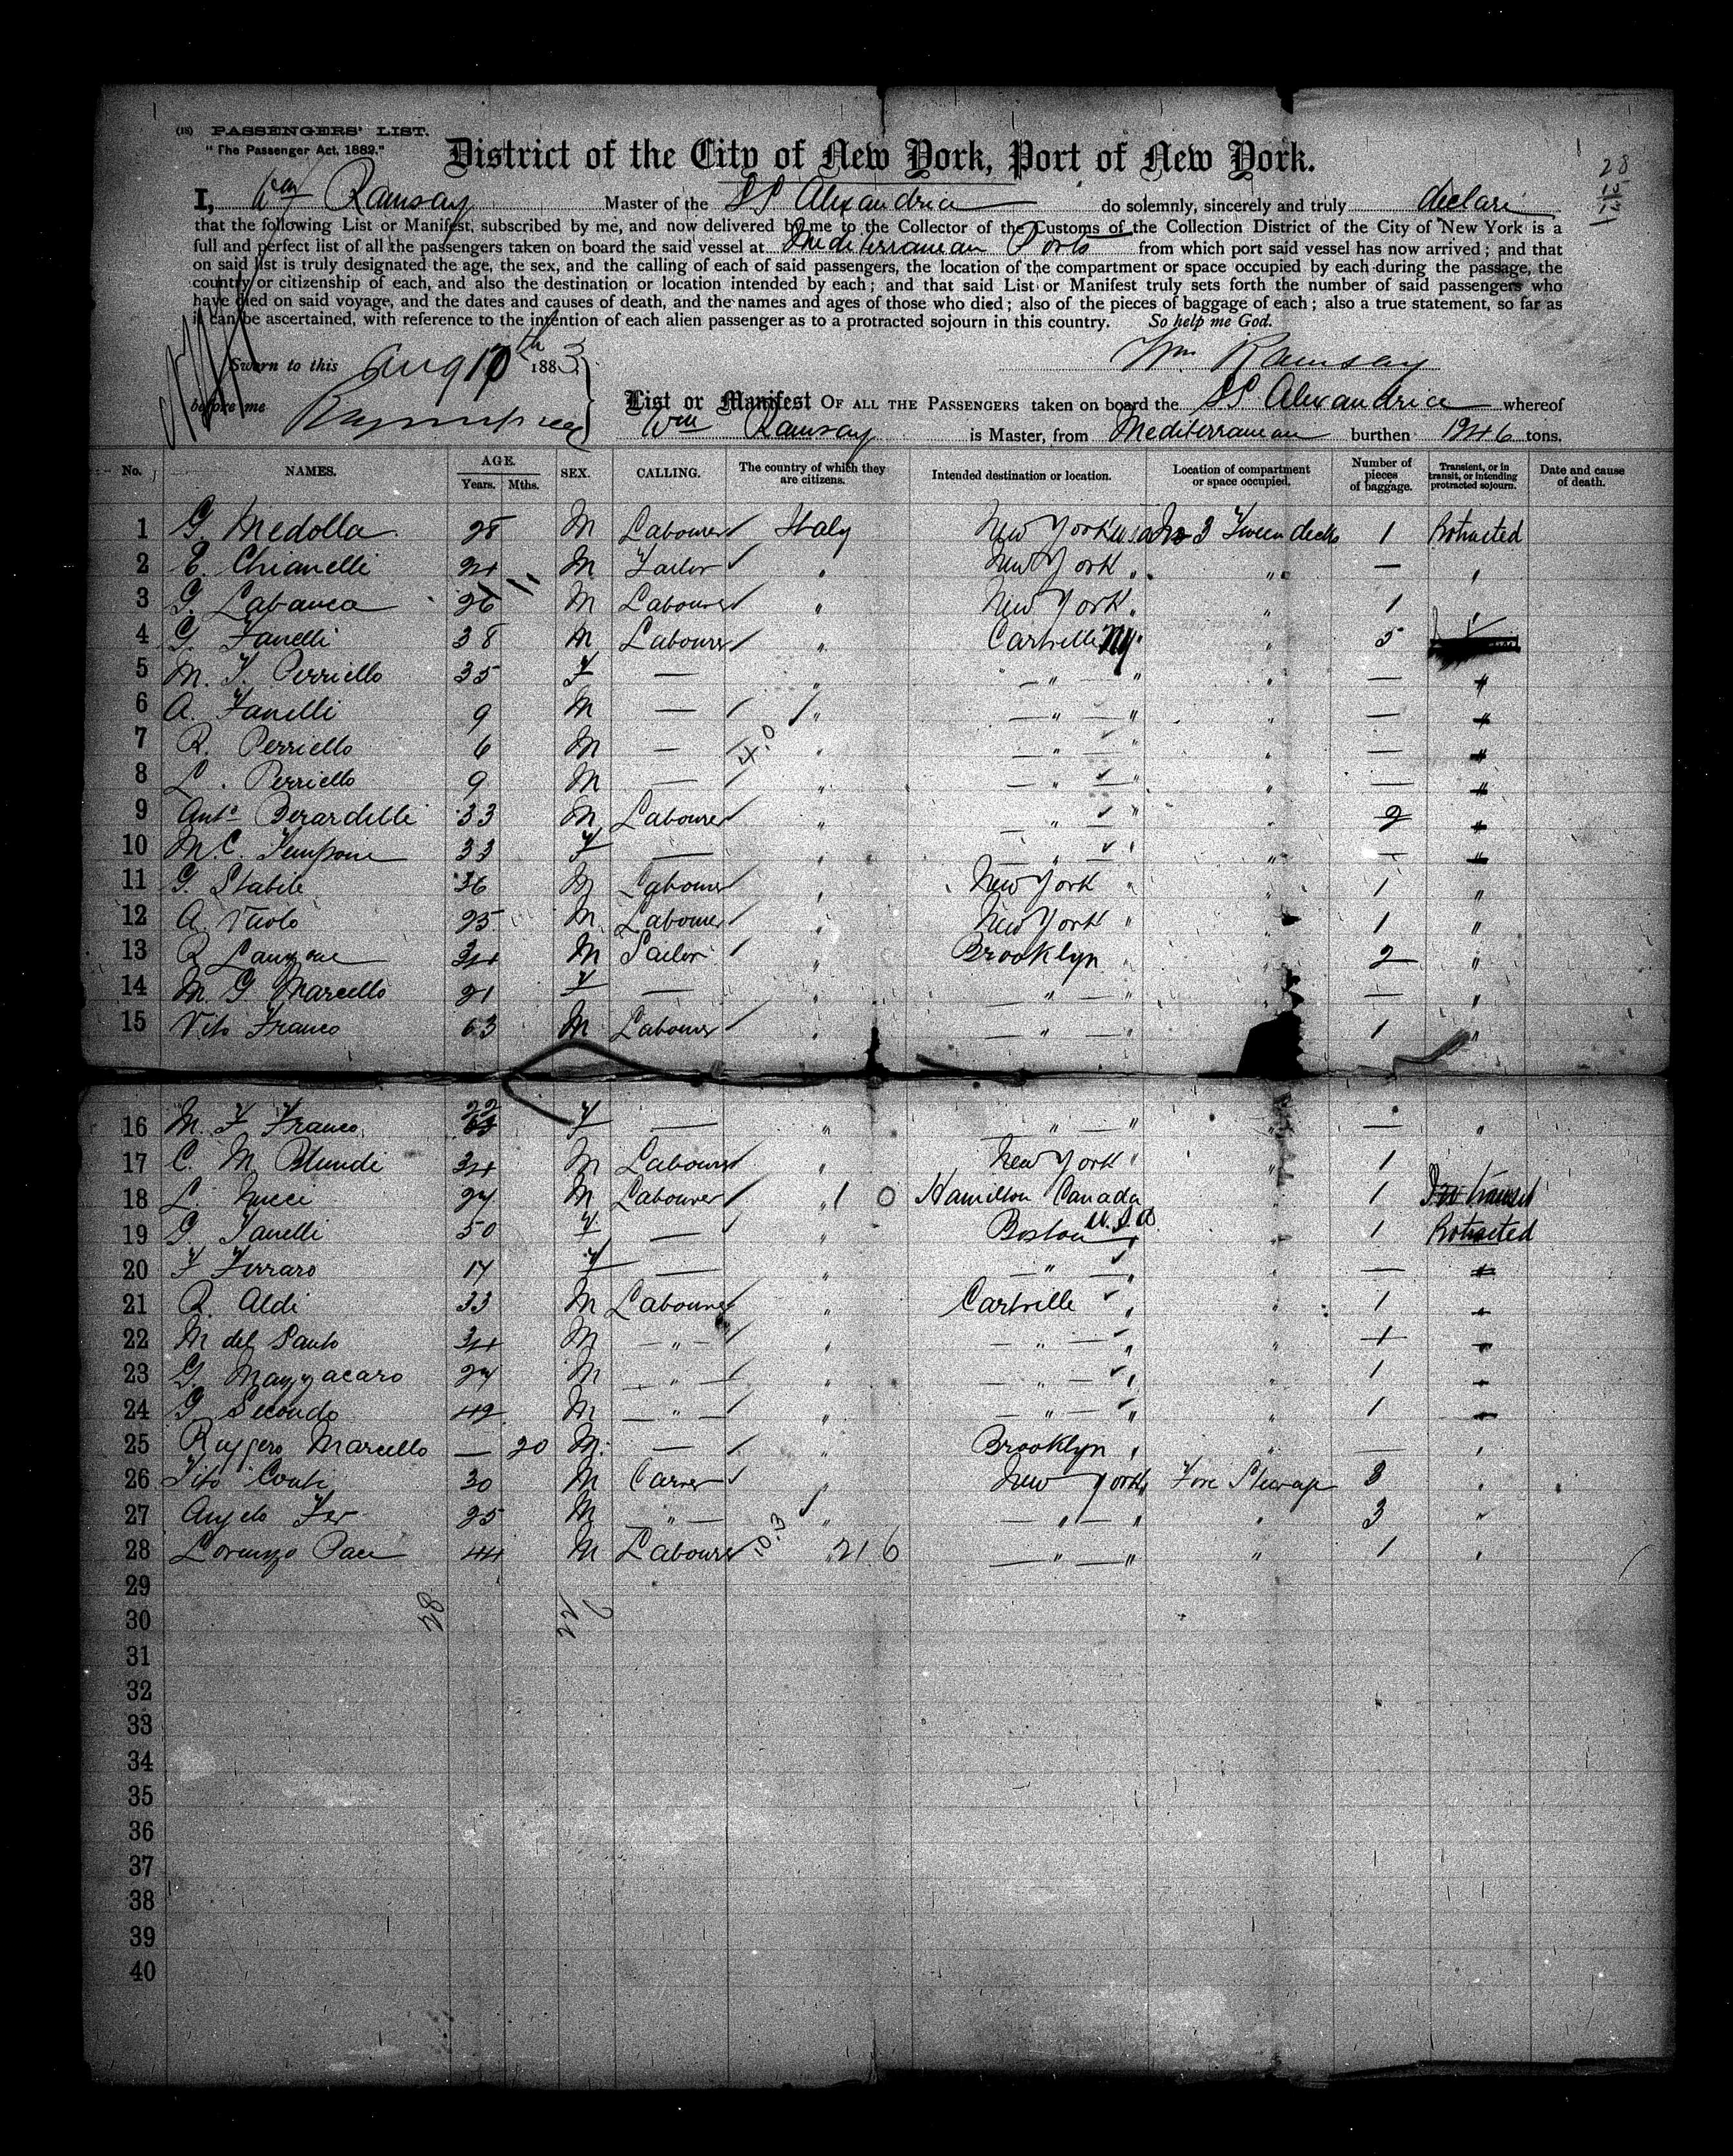 (18) PASSENGERS' LIST.
"The Passenger Act, 1882."
District of the City of New York, Port of New York.
28
I, Wm Ramsay Master of the SS Alexandria do solemnly, sincerely and truly declare
that the following List or Manifest, subscribed by me, and now delivered by me to the Collector of the Customs of the Collection District of the City of New York is a
full and perfect list of all the passengers taken on board the said vessel at Mediterranean Ports from which port said vessel has now arrived; and that
on said list is truly designated the age, the sex, and the calling of each of said passengers, the location of the compartment or space occupied by each during the passage, the
country or citizenship of each, and also the destination or location intended by each; and that said List or Manifest truly sets forth the number of said passengers who
have died on said voyage, and the dates and causes of death, and the names and ages of those who died; also of the pieces of baggage of each; also a true statement, so far as
it can be ascertained, with reference to the intention of each alien passenger as to a protracted sojourn in this country. So help me God.
Sworn to this Aug 10th 1883 Wm Ramsay
before me
List or Manifest OF ALL THE PASSENGERS taken on board the SS Alexandria whereof
Wm Ramsay is Master, from Mediterranean burthen 1946 tons.
No. NAMES. AGE. Years. Mths. SEX. CALLING. The country of which they are citizens. Intended destination or location. Location of compartment or space occupied. Number of pieces of baggage. Transient, or in transit, or intending protracted sojourn. Date and cause of death.
1 G. Medolla 28 M Labourer Italy New York USA No 3 Tween decks 1 Protracted
2 E. Chianelli 24 M Tailor " New York " " — "
3 G. Labanca 26 M Labourer " New York " " 1 "
4 G. Fanelli 38 M Labourer " Cartville NY " 5
5 M. F. Perriello 35 F — " — " — " " — "
6 A. Fanelli 9 M — " — " — " " — "
7 R. Perriello 6 M — " — " — " " — "
8 L. Perriello 9 M — " — " — " " — "
9 Anto Berardelli 33 M Labourer " — " — " " 2 "
10 M. C. 33 F — " — " — " " — "
11 G. Stabile 36 M Labourer " New York " " 1 "
12 A 25 M Labourer " New York " " 1 "
13 R Langone 34 M Sailor " Brooklyn " " 2 "
14 M. G Marcello 21 F — " — " — " " — "
15 Vito Franco 63 M Labourer " — " — " 1 "
16 M. F Franco 22 F — " — " — " " — "
17 C. M. Blundi 34 M Labourer " New York " " 1 "
18 L. Nucci 27 M Labourer " 1 0 Hamilton Canada " 1 In transit
19 G. Fanelli 50 F — " Boston U.S.A. " 1 Protracted
20 F Ferraro 17 F — " — " — " " — "
21 R. Aldi 33 M Labourer " Cartville " " 1 "
22 M del Santo 34 M — " — " — " — " " 1 "
23 G Mazzacaro 27 M — " — " — " — " " 1 "
24 G Secondo 42 M — " — " — " — " " 1 "
25 Ruggero Marcello — 20 M. — " Brooklyn " " — "
26 Tito Conti 30 M Carver " New York " Fore Steerage 3 "
27 Angelo 25 M — " — " — " — " " 3 "
28 Lorenzo Pace 44 M Labourer 10.3 " 21 6 — " — " " 1 "
29
30
31
32
33
34
35
36
37
38
39
40
28
22
6